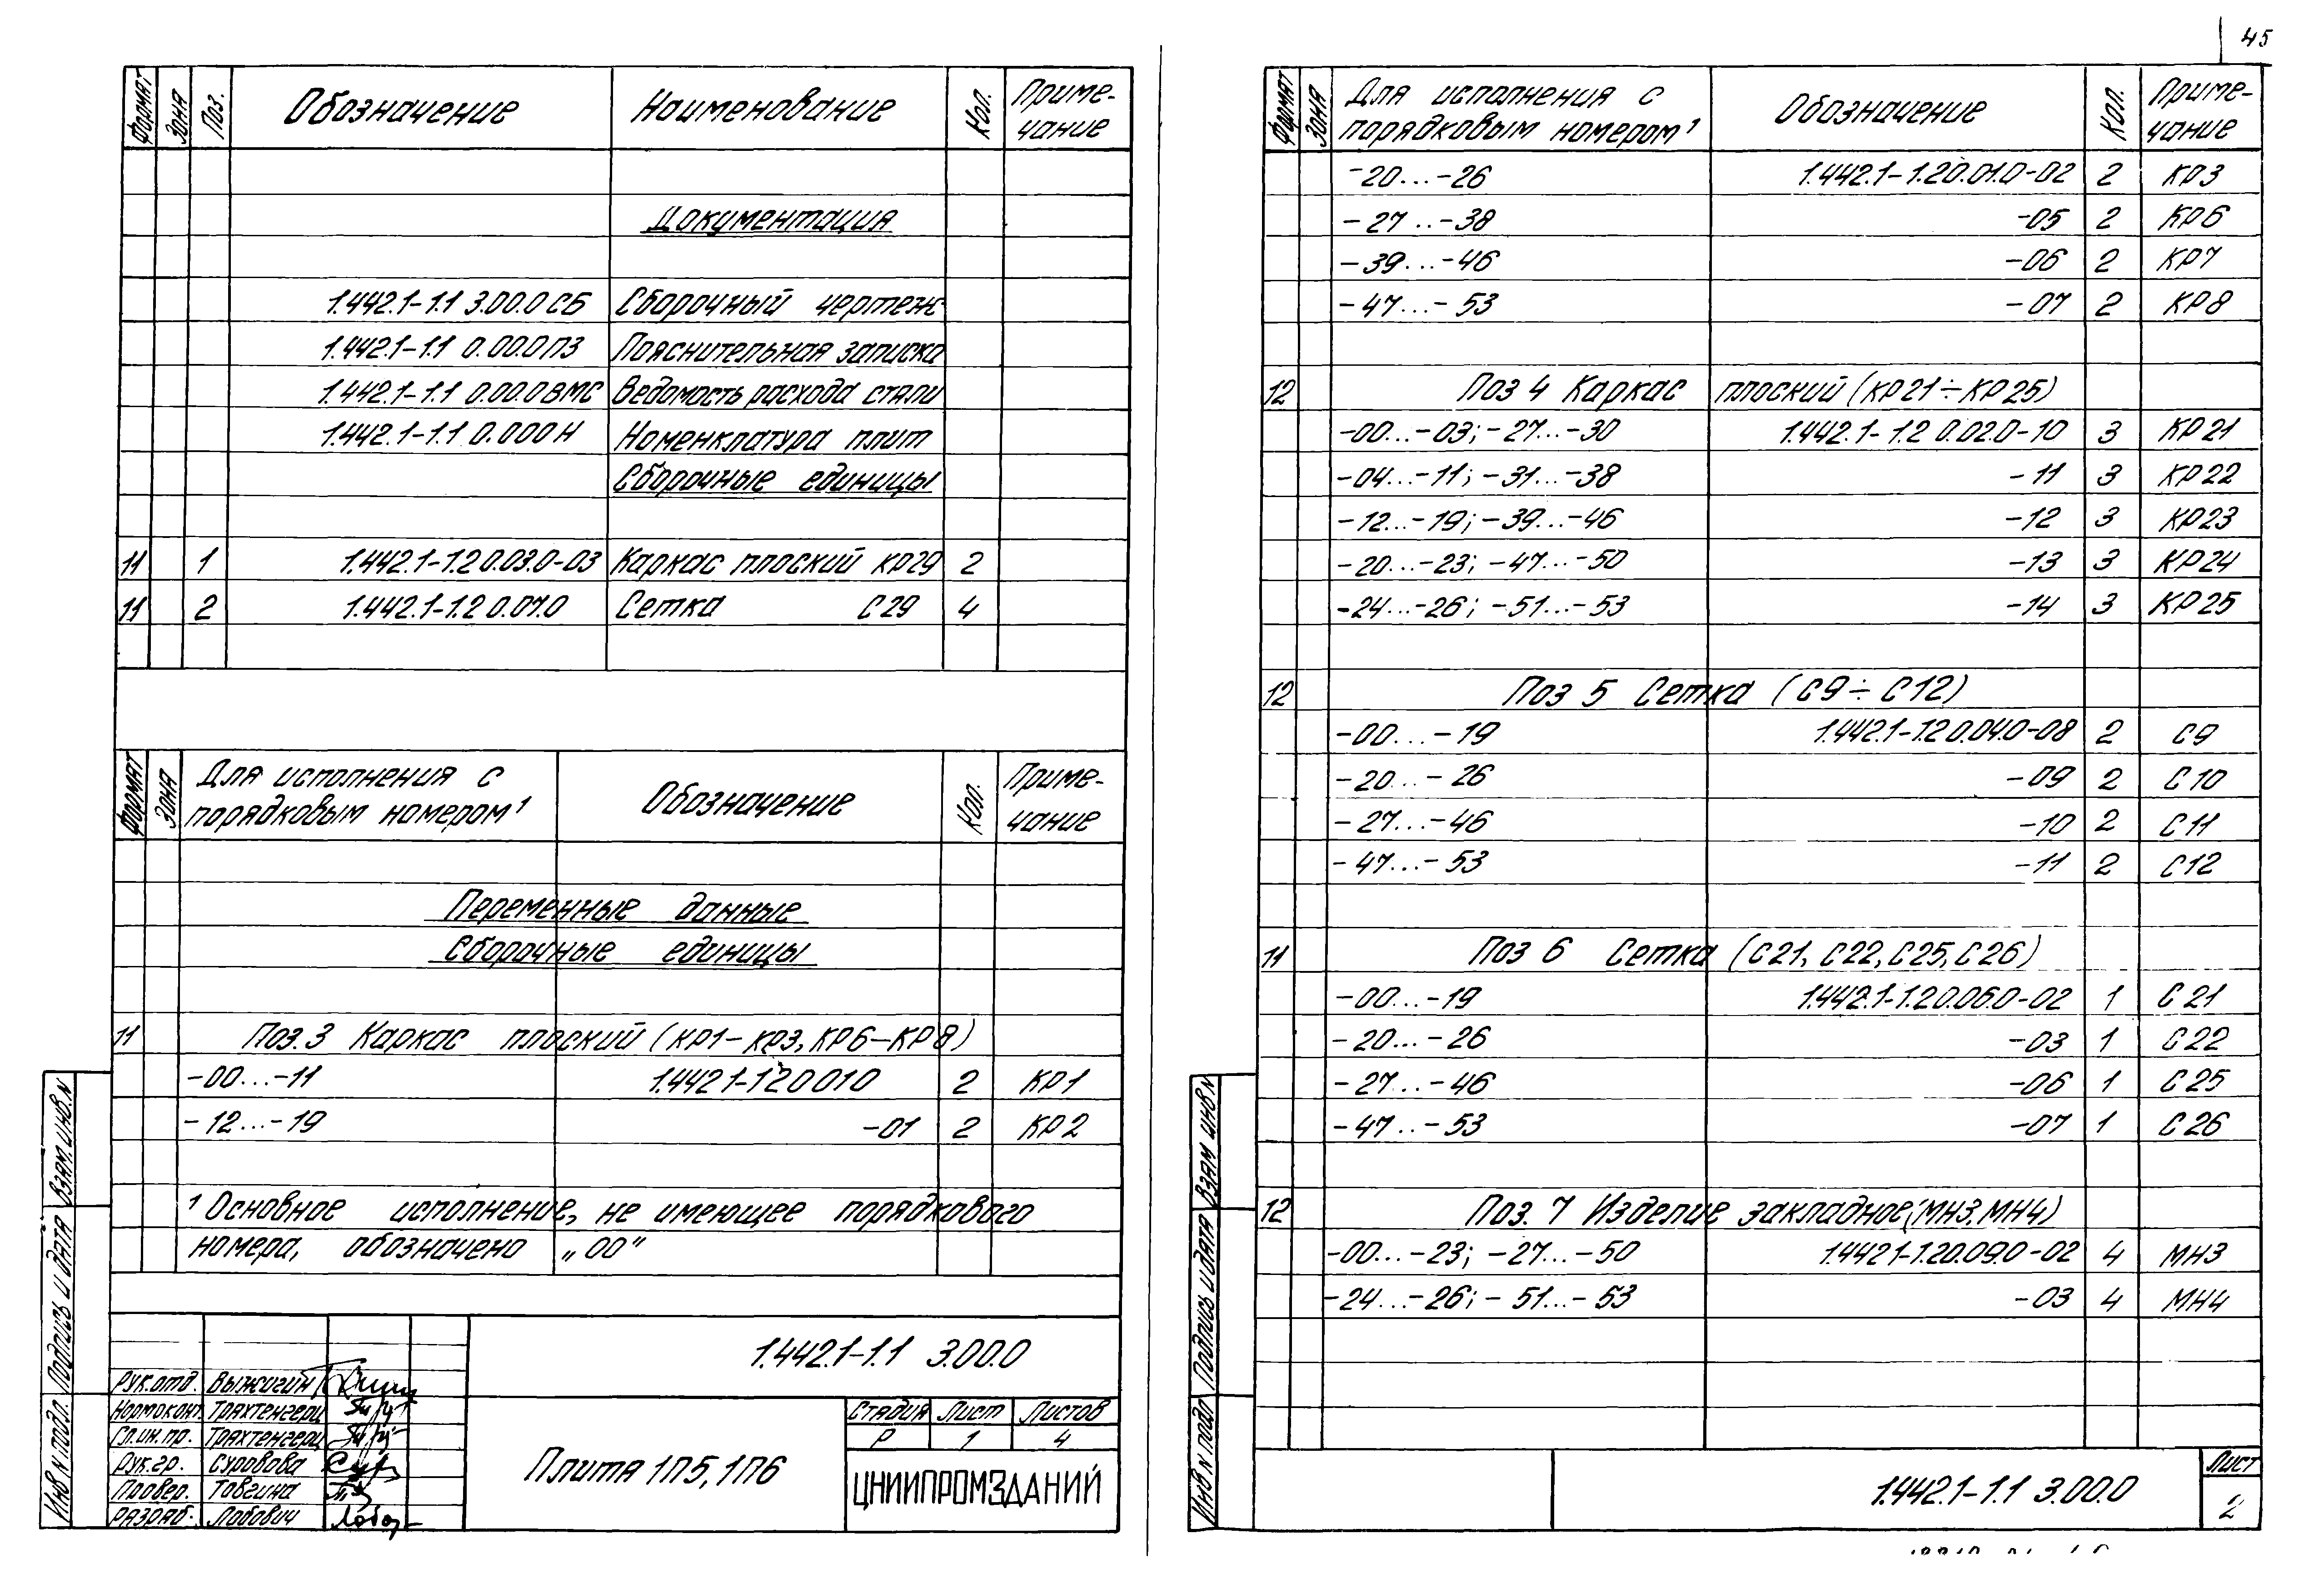 45
Формат Зона Поз. Обозначение Наименование Кол. Приме-
чание
Документация
1.442.1-1.1 3.00.0СБ Сборочный чертеж
1.442.1-1.1 0.00.0ПЗ Пояснительная записка
1.442.1-1.1 0.00.0ВМС Ведомость расхода стали
1.442.1-1.1 0.000Н Номенклатура плит
Сборочные единицы
11 1 1.442.1-1.2 0.03.0-03 Каркас плоский КР29 2
11 2 1.442.1-1.2 0.07.0 Сетка С29 4
Формат Зона Для исполнения с
порядковым номером¹ Обозначение Кол. Приме-
чание
Переменные данные
Сборочные единицы
11 Поз.3 Каркас плоский (КР1-КР3, КР6-КР8)
-00...-11 1.442 1-1.20010 2 КР1
-12...-19 -01 2 КР2
¹ Основное исполнение, не имеющее порядкового
номера, обозначено „00"
Взам. инв. N
Подпись и дата
Инв N подл.
1.442.1-1.1 3.00.0
Рук.отд. Выжигин
Нормоконт. Трахтенгерц
Гл.ин.пр. Трахтенгерц
Рук.гр. Суровова
Провер. Товгина
Разраб. Лобович
Плита 1П5, 1П6
Стадия Лист Листов
Р 1 4
ЦНИИПРОМЗДАНИЙ
Формат Зона Для исполнения с
порядковым номером¹ Обозначение Кол. Приме-
чание
-20...-26 1.442.1-1.20.01.0-02 2 КР3
-27...-38 -05 2 КР6
-39...-46 -06 2 КР7
-47...-53 -07 2 КР8
12 Поз 4 Каркас плоский (КР21÷КР25)
-00...-03; -27...-30 1.442.1-1.2 0.02.0-10 3 КР21
-04...-11; -31...-38 -11 3 КР22
-12...-19; -39...-46 -12 3 КР23
-20...-23; -47...-50 -13 3 КР24
-24...-26; -51...-53 -14 3 КР25
12 Поз 5 Сетка (С9÷С12)
-00...-19 1.442.1-1.2 0.04.0-08 2 С9
-20...-26 -09 2 С10
-27...-46 -10 2 С11
-47...-53 -11 2 С12
11 Поз 6 Сетка (С21, С22, С25, С26)
-00...-19 1.442.1-1.20.06.0-02 1 С21
-20...-26 -03 1 С22
-27...-46 -06 1 С25
-47...-53 -07 1 С26
12 Поз. 7 Изделие закладное (МН3, МН4)
-00...-23; -27...-50 1.442 1-1.20.09.0-02 4 МН3
-24...-26; -51...-53 -03 4 МН4
Взам инв N
Подпись и дата
Инв N подл
1.442.1-1.1 3.00.0
Лист
2